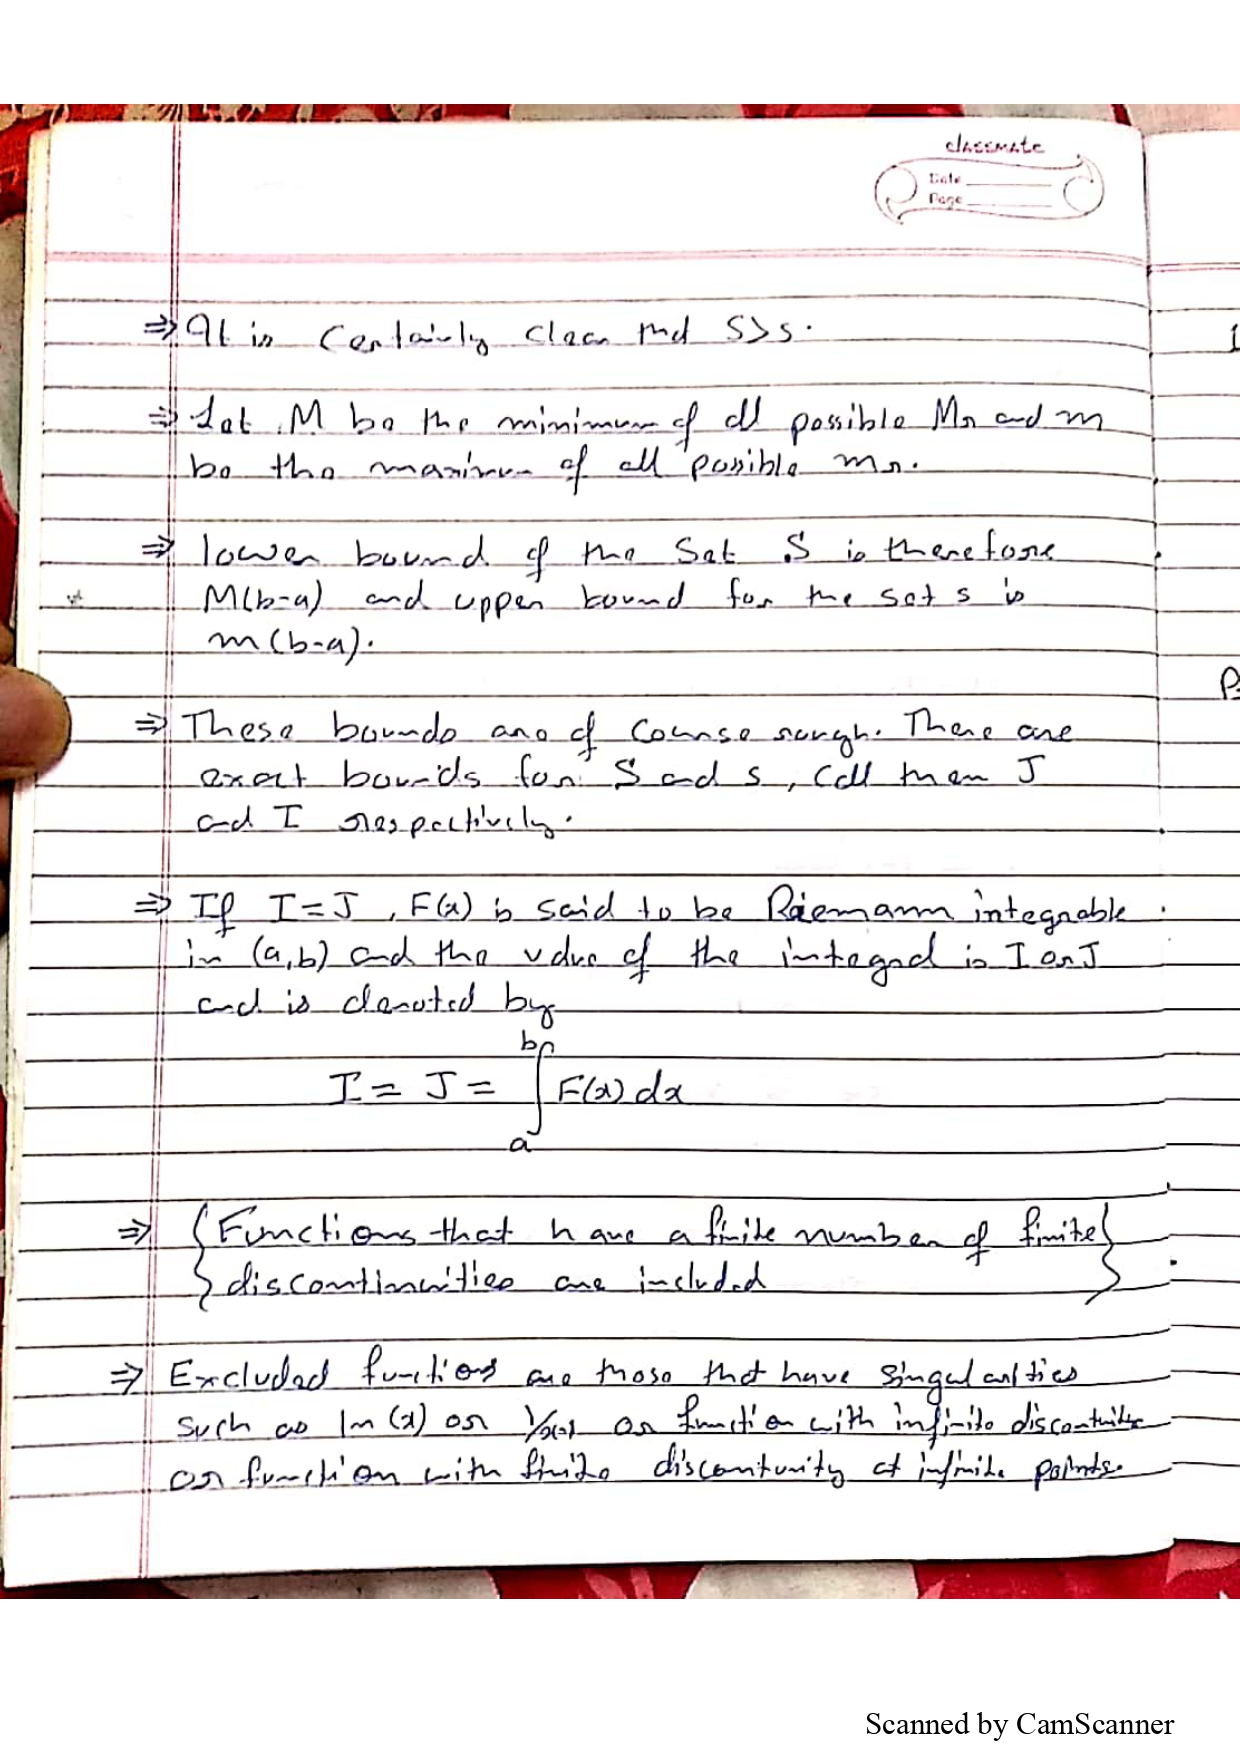 classmate
Date
Page
⇒ It is certainly clear that S>s.
⇒ Let M be the minimum of all possible Mr and m
be the maximum of all possible mr.
⇒ lower bound of the set S is therefore
M(b-a) and upper bound for the set s is
m(b-a).
⇒ These bounds are of course rough. There are
exact bounds for S and s, call them J
and I respectively.
⇒ If I=J, F(x) is said to be Riemann integrable
in (a,b) and the value of the integral is I or J
and is denoted by
I = J = ∫_a^b F(x) dx
⇒ {Functions that have a finite number of finite
discontinuities are included}
⇒ Excluded functions are those that have singularities
such as ln(x) or or function with infinite discontinuities
or function with finite discontunity at infinite points.
Scanned by CamScanner